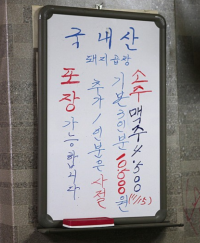 국내산
돼지곱창
소주 맥주 4.500
기본 3인분 10000원
(1/15)
추가 1인분은 사절
포장 가능합니다